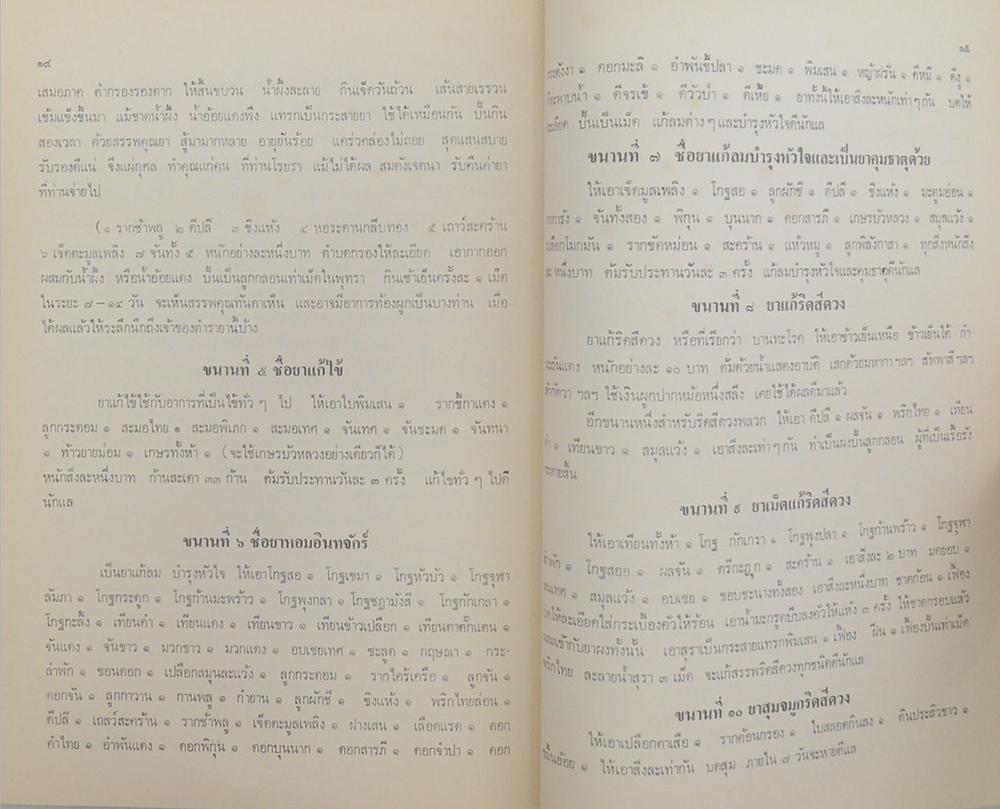 ๑๔
เสมอภาค ตำกรองรองตาก ให้สิ้นขบวน น้ำผึ้งละลาย กินเจ็ดวันถ้วน เส้นสายเรรวน
เข้มแข็งขึ้นมา แม้ขาดน้ำผึ้ง น้ำอ้อยแดงพึง แทรกเป็นกระสายยา ใช้ได้เหมือนกัน ปั้นกิน
สองเวลา ด้วยสรรพคุณยา สู้มามากหลาย อายุยันร้อย แคร่วคล่องไม่ถอย สุดแสนสบาย
รับรองดีแน่ จึงแผ่กุศล ทำคุณแก่คน ที่ท่านโรยรา แม้ไม่ได้ผล สมดังเจตนา รับคืนค่ายา
ที่ท่านจ่ายไป
(๑ รากช้าพลู ๒ ดีปลี ๓ ขิงแห้ง ๔ หอระดานกลีบทอง ๕ เถาว์สะค้ร้าน
๖ เจ็ดตะมูลเพลิง ๗ จันทั้ง ๕ หนักอย่างละหนึ่งบาท ตำบดกรองให้ละเอียด เอากากออก
ผสมกับน้ำผึ้ง หรือน้ำอ้อยแดง ปั้นเป็นลูกกลอนเท่าเม็ดในพุทรา กินเช้าเย็นครั้งละ ๑ เม็ด
ในระยะ ๗ – ๑๔ วัน จะเห็นสรรพคุณทันตาเห็น และอาจมีอาการท้องผูกเป็นบางท่าน เมื่อ
ได้ผลแล้วให้ระลึกนึกถึงเจ้าของตำรายานี้บ้าง
ขนานที่ ๕ ชื่อยาแก้ไข้
ยาแก้ไข้ใช้กับอาการที่เป็นไข้ทั่ว ๆ ไป ให้เอาใบพิมเสน ๑ รากขี้กาแดง ๑
ลูกกระดอม ๑ สะมอไทย ๑ สะมอพิเภก ๑ สะมอเทศ ๑ จันเทศ ๑ จันชะมด ๑ จันทนา
๑ ท้าวยายม่อม ๑ เกษรทั้งห้า ๑ (จะใช้เกษรบัวหลวงอย่างเดียวก็ได้)
หนักสิ่งละหนึ่งบาท ก้านสะเดา ๓๓ ก้าน ต้มรับประทานวันละ ๓ ครั้ง แก้ไขทั่ว ๆ ไปดี
นักแล
ขนานที่ ๖ ชื่อยาหอมอินทจักร์
เป็นยาแก้ลม บำรุงหัวใจ ให้เอาโกฐสอ ๑ โกฐเขมา ๑ โกฐหัวบัว ๑ โกฐจุฬา
ลัมภา ๑ โกฐกระดูก ๑ โกฐก้านมะพร้าว ๑ โกฐพุงกลา ๑ โกฐชฎามังสี ๑ โกฐกักเกลา ๑
โกฐกะลิ้ง ๑ เทียนดำ ๑ เทียนแดง ๑ เทียนขาว ๑ เทียนข้าวเปลือก ๑ เทียนตาตั๊กแตน ๑
จันแดง ๑ จันขาว ๑ มวกขาว ๑ มวกแดง ๑ อบเชยเทศ ๑ ชะลูด ๑ กฤษณา ๑ กระ-
ลำพัก ๑ ขอนดอก ๑ เปลือกสมุนละแว้ง ๑ ลูกกระดอม ๑ รากไคร้เครือ ๑ ลูกจัน ๑
ดอกจัน ๑ ลูกกาวาน ๑ กานพลู ๑ กำยาน ๑ ลูกผักชี ๑ ขิงแห้ง ๑ พริกไทยล่อน ๑
ดีปลี ๑ เถสว์สะค้ร้าน ๑ รากช้าพลู ๑ เจ็ดตะมูลเพลิง ๑ ฝางเสน ๑ เลือดแรด ๑ ดอก
คำไทย ๑ อำพันแดง ๑ ดอกพิกุ่น ๑ ดอกบุนนาก ๑ ดอกสารภี ๑ ดอกจำปา ๑ ดอก
๑๕
กระดังงา ๑ ดอกมะลิ ๑ อำพันขี้ปลา ๑ ชะมด ๑ พิมเสน ๑ หญ้าฝรั่น ๑ ดีหมี ๑ ดีงู ๑
ดีตะพาบน้ำ ๑ ดีจรเข้ ๑ ดีวัวป่า ๑ ดีเหี้ย ๑ ยาทั้งนี้ให้เอาสิ่งละหนักเท่า ๆ กัน บดให้
ละเอียด ปั้นเป็นเม็ด แก้ลมต่าง ๆ และบำรุงหัวใจดีนักแล
ขนานที่ ๗ ชื่อยาแก้ลมบำรุงหัวใจและเป็นยาคุมธาตุด้วย
ให้เอาเจ็ดมูลเพลิง ๑ โกฐสอ ๑ ลูกผักชี ๑ ดีปลี ๑ ขิงแห้ง ๑ มะตูมอ่อน ๑
จันทั้งสอง ๑ พิกุน ๑ บุนนาก ๑ ดอกสารภี ๑ เกษรบัวหลวง ๑ สมุลแว้ง ๑
เปลือกโมกมัน ๑ รากขัดหม่อน ๑ สะค้ร้าน ๑ แห้วหมู ๑ ลูกพิลังกาสา ๑ ทุกสิ่งหนักสิ่ง
ละ หนึ่งบาท ต้มรับประทานวันละ ๓ ครั้ง แก้ลมบำรุงหัวใจและคุมธาตุดีนักแล
ขนานที่ ๘ ยาแก้ริดสีดวง
ยาแก้ริดสีดวง หรือที่เรียกว่า บานทะโรค ให้เอาข้าวเย็นเหนือ ข้าวเย็นใต้ กำ-
มะถันแดง หนักอย่างละ ๑๐ บาท ต้มด้วยน้ำแสดงอาบัติ เสกด้วยมหากาฯลฯ สัพพาสีฯลฯ
ฯลฯ ใช้เงินผูกปากหม้อหนึ่งสลึง เคยใช้ได้ผลดีมาแล้ว
อีกขนานหนึ่งสำหรับริดสีดวงพลวก ให้เอา ดีปลี ๑ ผลจัน ๑ พริกไทย ๑ เทียน
ดำ ๑ เทียนขาว ๑ สมุลแว้ง ๑ เอาสิ่งละเท่า ๆ กัน ทำเป็นผงปั้นลูกกลอน ผู้ที่เป็นเรื้อรัง
จะหายสิ้น
ขนานที่ ๙ ยาเม็ดแก้ริดสีดวง
ให้เอาเทียนทั้งห้า ๑ โกฐ กักเกรา ๑ โกฐพุงปลา ๑ โกฐก้านพร้าว ๑ โกฐจุฬา
ลำพัก ๑ โกฐสออ ๑ ผลจัน ๑ ตรีกะฏุก ๑ สะค้ร้าน ๑ เอาสิ่งละ ๒ บาท มดยอบ ๑
๑ สมุลแว้ง ๑ อบเชย ๑ ขอบชะนางทั้งสอง เอาสิ่งละหนึ่งบาท ชาดก้อน ๑ เฟื้อง
บดให้ละเอียดใส่กระเบื้องคั่วให้ร้อน เอาน้ำมะกรูดบีบลงคั่วให้แห้ง ๓ ครั้ง ให้ชาดกรอบแล้ว
และเข้ากับยาผงทั้งนั้น เอาสุราเป็นกระสายแทรกพิมเสน ๑ เฟื้อง ฝิ่น ๑ เฟื้องปั้นเท่าเม็ด
พริกไทย ละลายน้ำสุรา ๓ เม็ด จะแก้สรรพริดสีดวงทุกชนิดดีนักแล
ขนานที่ ๑๐ ยาสุมจมูกริดสีดวง
ให้เอาเปลือกตาเสือ ๑ รากค้อนกรอง ๑ ใบสลอดกินลง ๑ ดินประสิวขาว ๑
ขมิ้นอ้อย ๑ ให้เอาสิ่งละเท่ากัน บดสุม ภายใน ๗ วันจะหายดีแล